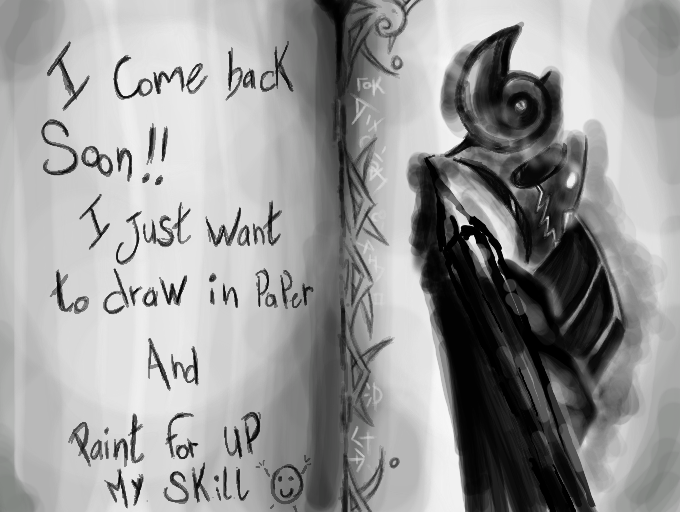 I Come back
Soon!!
I Just Want
to draw in PaPer
And
Paint For UP
My SKill